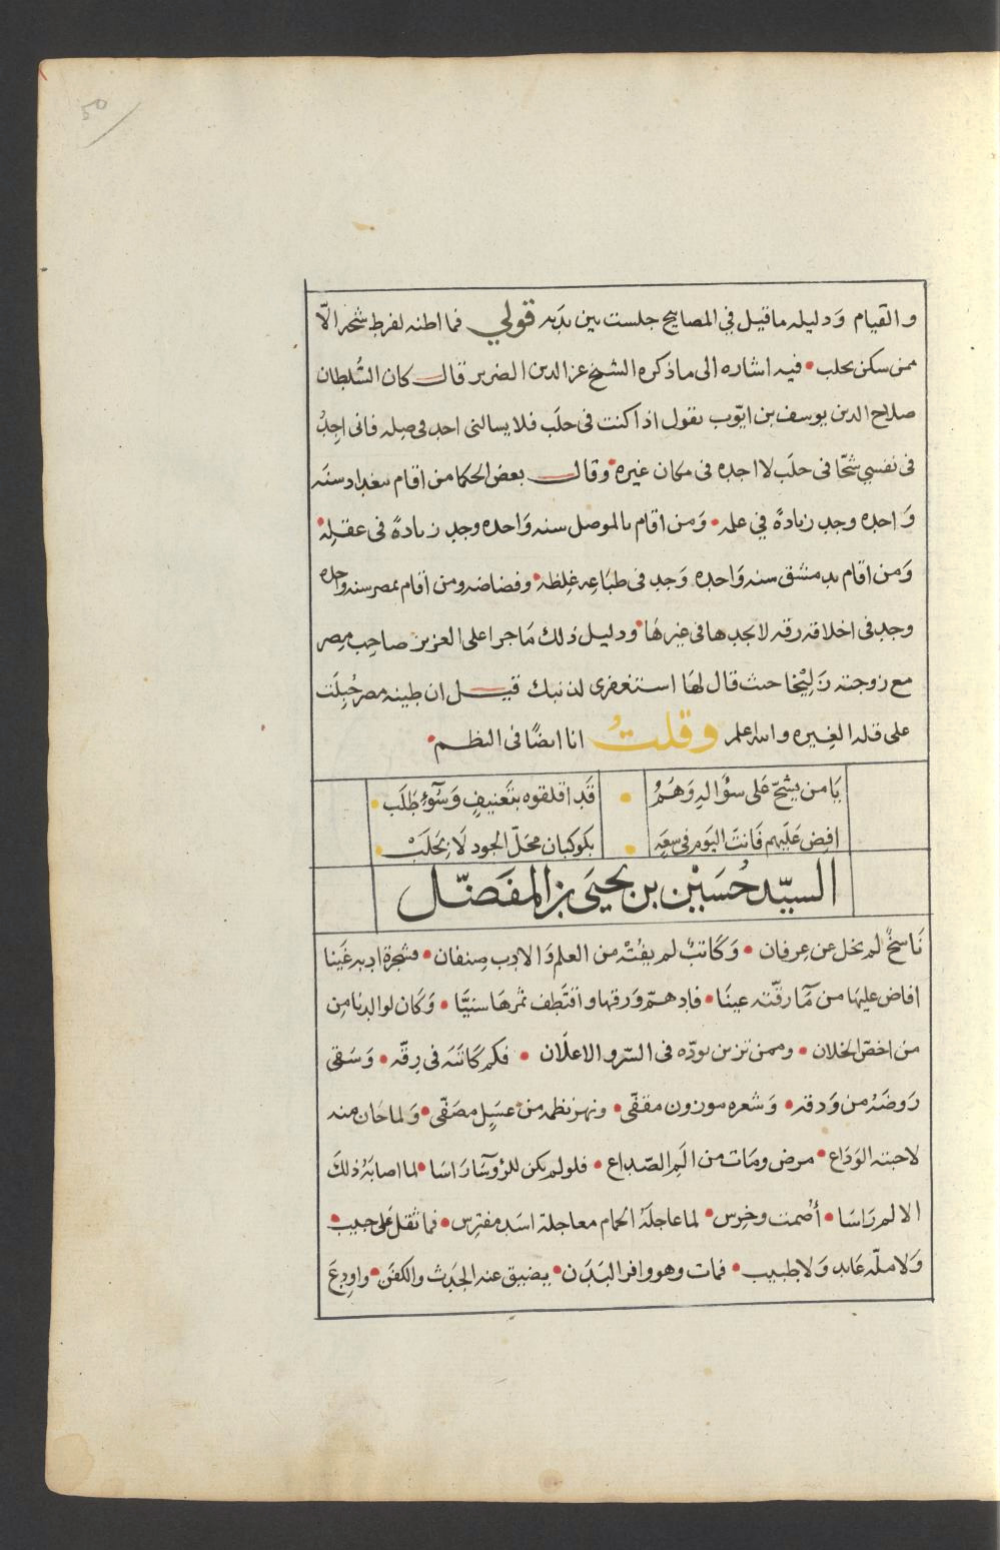 50
والقيام وَدليله ماقيل في المصابيح جلست بين يديه قولي فما اظنه لفرط شحه الّا
ممن سكن بحلب • فيه اشاره الى ماذكره الشيخ عز الدين الضرير قال كان السُّلطان
صلاح الدين يوسف بن ايّوب يقول اذا كنت فى حلَب فلا يسالنى احد فى صله فانى اجدُ
فى نفسي شحّا فى حلَب لا اجده فى مكان غيره • وقال بعض الحكما من اقام ببغداد سنَه
وَاحده وجد زيادةً في علمه • وَمن اقام بالموصل سنه وَاحده وجد زيادةً فى عقله •
وَمن اقام بدمشق سنه وَاحده وَجد فى طبَاعِه غِلظه • وفضاضه ومن اقام بمصر سنه واحده
وجد فى اخلاقه رقه لا يجدها فى غيرهَا • ودليل ذلك مَا جرا على العزيز صاحِب مِصر
مع زوجته زَليْخا حيث قال لهَا استغفرى لذنبك قيل ان طينه مصر جُبِلَت
على قله الغيره والله اعلم وقلتُ انا ايضًا فى النظم •
يَا من يشحّ عَلى سؤاله وَهمُ • قَد اقلقوه بتَعنيفٍ وَسُوءِ طَلَب •
افِض عَلَيهم فَانتَ اليَوم فى سِعَه • بكوكبان محَلّ الجود لَا بحَلَبْ •
السيّد حُسَيْن بن يحيَى بن المفَضّل
نَاسخٌ لم يخل عن عِرفان • وَكَاتبٌ لم يفُتْه من العلم وَالادب صِنفان • فشجرة ادبه غَينا
افاض عليهَا من مَآ رقّته عينَا • فادهمّ وَرقها واقتَطِف ثمرهَا سنيًّا • وَكَان لوالدنا من
من اخصّ الخلان • وممن تزين بودّه فى السّر والاعلَان • فكم كَاتَبَه فى رِقّه • وَسَقى
رَوضَهُ من وَدقه • وَشعره موزون مقفّى • ونهر نظمه من عسَلٍ مصَفّى • وَلما حَان منه
لاحبته الوَدَاع • مرض ومَات من الَم الصّداع • فلو لم يكن للرؤسَآ رَاسَا • لما اصابَهُ ذلكَ
الالم رَاسَا • أُصمت وخُرس • لما عَاجلَهُ الحمام معاجلة اسَد مفترس • فما ثقل عَلى حبيب •
وَلا ملّه عَايد وَلا طبيب • فمات وهو وافر البَدَن • يضيق عنه الجدَث والكفَن • واودِعَ